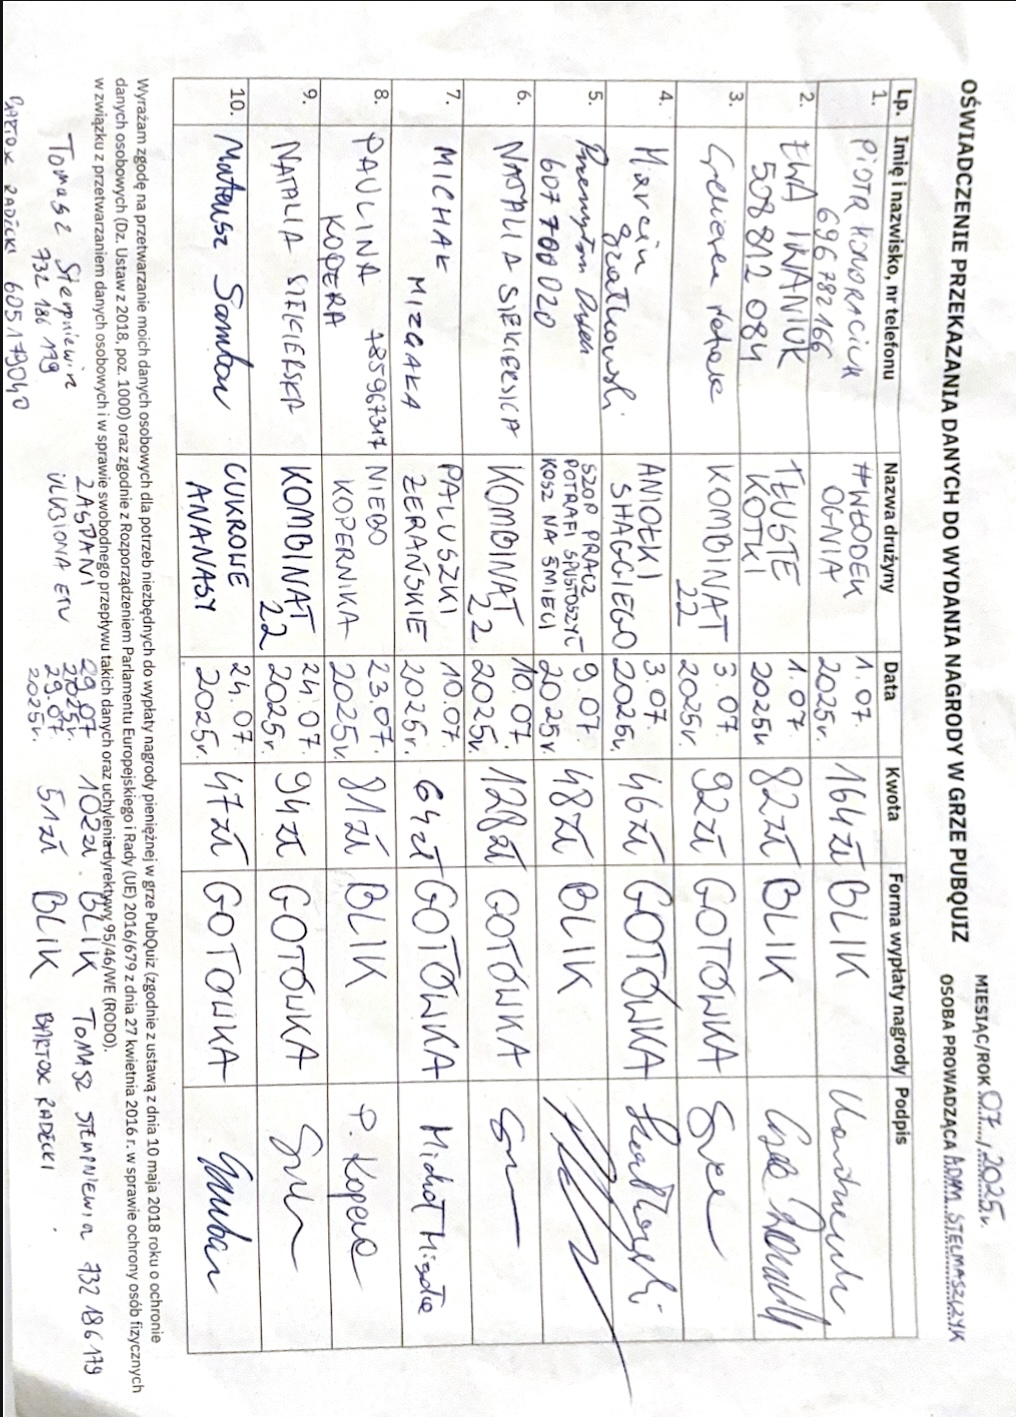 OŚWIADCZENIE PRZEKAZANIA DANYCH DO WYDANIA NAGRODY W GRZE PUBQUIZ
MIESIĄC/ROK 07/2025r.
OSOBA PROWADZĄCA ADAM STELMASZCZYK
Lp. Imię i nazwisko, nr telefonu Nazwa drużyny Data Kwota Forma wypłaty nagrody Podpis
1. PIOTR 696 782 166 #WŁODEK OGNIA 1.07. 2025r. 164zł BLIK
2. EWA IWANIUK 508 812 084 TŁUSTE KOTKI 1.07. 2025r. 82zł BLIK
3. KOMBINAT 22 3.07. 2025r. 92zł GOTÓWKA
4. Marcin ANIOŁKI SHAGGIEGO 3.07. 2025r. 46zł GOTÓWKA
5. 607 700 020 SZOP PRACZ POTRAFI SPUSTOSZYĆ KOSZ NA ŚMIECI 9.07. 2025r. 48zł BLIK
6. NATALIA SIEKIERSKA KOMBINAT 22 10.07. 2025r. 128zł GOTÓWKA
7. MICHAŁ MIZGAŁA PALUSZKI ŻERAŃSKIE 10.07. 2025r. 64zł GOTÓWKA Michał
8. PAULINA KOPERA 785967317 NIEBO KOPERNIKA 23.07. 2025r. 81zł BLIK P. Kopera
9. NATALIA SIEKIERSKA KOMBINAT 22 24.07. 2025r. 94zł GOTÓWKA
10. Mateusz CUKROWE ANANASY 24.07. 2025r. 47zł GOTÓWKA
Wyrażam zgodę na przetwarzanie moich danych osobowych dla potrzeb niezbędnych do wypłaty nagrody pieniężnej w grze PubQuiz (zgodnie z ustawą z dnia 10 maja 2018 roku o ochronie
danych osobowych (Dz. Ustaw z 2018, poz. 1000) oraz zgodnie z Rozporządzeniem Parlamentu Europejskiego i Rady (UE) 2016/679 z dnia 27 kwietnia 2016 r. w sprawie ochrony osób fizycznych
w związku z przetwarzaniem danych osobowych i w sprawie swobodnego przepływu takich danych oraz uchylenia dyrektywy 95/46/WE (RODO).
Tomasz Stempniewicz 732 186 179 ZASPANI 29.07 2025r. 102zł BLIK TOMASZ STEMPNIEWICZ 732 186 179
RADECKI 605179040 29.07. 2025r. 51zł BLIK RADECKI